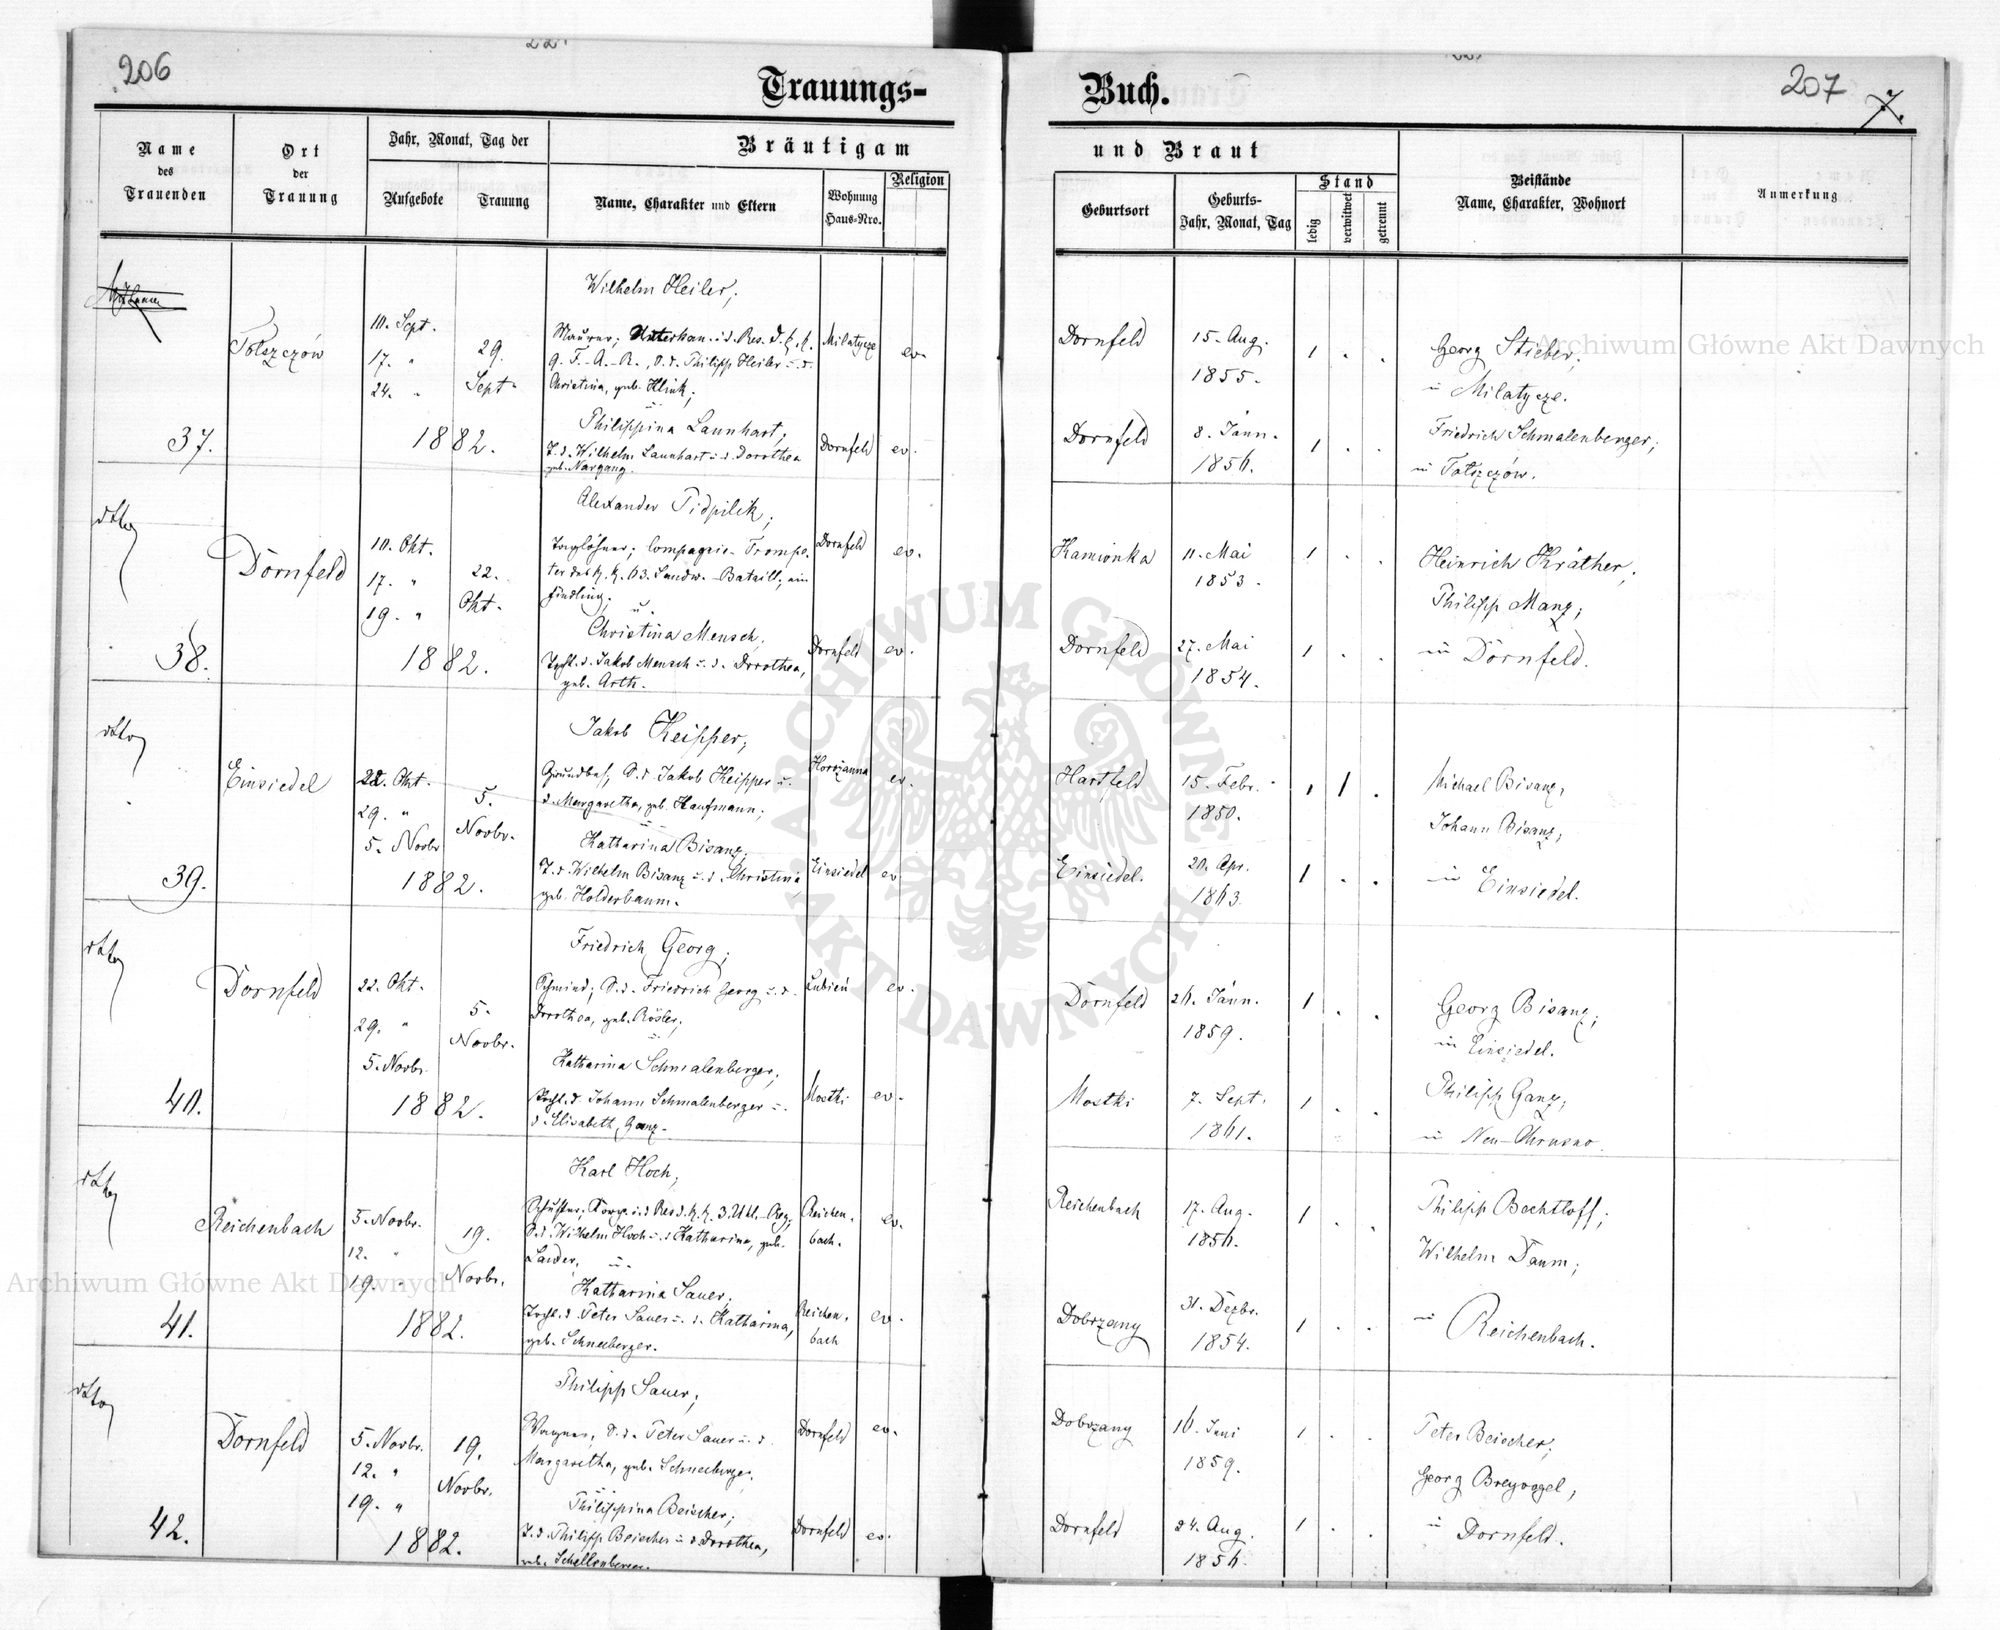 206
Trauungs-
Buch.
207
7.
Name
des
Trauenden
Ort
der
Trauung
Jahr, Monat, Tag der
Aufgebote
Trauung
Bräutigam
Name, Charakter und Eltern
Wohnung
Haus-Nro.
Religion
und Braut
Geburtsort
Geburts-
Jahr, Monat, Tag
Stand
ledig
verwitwet
getrennt
Beistände
Name, Charakter, Wohnort
Anmerkung
37.
10. Sept.
17. "
24. "
29.
Sept.
1882.
Wilhelm Heiler;
Maurer; i. d. Res. d. k. k.
9. F.-A.-R., S. d. Philipp Heiler u. d.
Christina, geb. Klink;
u.
Philippina Launhart;
T. d. Wilhelm Launhart u. d. Dorothea
geb. Nargang.
Milatycze
ev.
Dornfeld
ev.
Dornfeld
15. Aug.
1855.
1 . .
Dornfeld
8. Jänn.
1856.
1 . .
Georg Stieber;
in Milatycze.
Friedrich Schmalenberger;
dtto
Dornfeld
38.
10. Okt.
17. "
19. "
22.
Okt.
1882.
Alexander Pidpilek;
Taglöhner; Compagnie-Trompe-
ter des k. k. 63. Landw.-Bataill., ein
Findling;
u.
Christina Mensch,
Tocht. d. Jakob Mensch u. d. Dorothea,
geb. Arth.
Dornfeld
ev.
Dornfeld
ev.
Kamionka
11. Mai
1853.
1 . .
Dornfeld
27. Mai
1854.
1 . .
Heinrich Kräther,
Philipp Manz;
in Dornfeld.
dtto
Einsiedel
39.
22. Okt.
29. "
5. Novbr
5.
Novbr.
1882.
Jakob Keipper;
Grundbes; S. d. Jakob Keipper u.
d. Margaretha, geb. Kaufmann;
Katharina Bisanz;
T. d. Wilhelm Bisanz u. d. Christina
geb. Holderbaum.
Horozanna
ev.
Einsiedel
ev.
Hartfeld
15. Febr.
1850.
Einsiedel.
20. Apr.
1863.
1 . .
Michael Bisanz,
Johann Bisanz,
in Einsiedel.
dtto
Dornfeld
40.
22. Okt.
29. "
5. Novbr.
5.
Novbr.
1882.
Friedrich Georg;
Schmied; S. d. Friedrich Georg u. d.
Dorothea, geb. Rösler;
u.
Katharina Schmalenberger;
Tocht. d. Johann Schmalenberger u.
d. Elisabeth, Ganz.
Lubień
ev.
Mostki
ev.
Dornfeld
26. Jänn.
1859.
1 . .
Mostki
7. Sept.
1861.
1 . .
Georg Bisanz;
in Einsiedel.
Philipp Ganz;
in Neu-Chrusno.
dtto
Reichenbach
41.
5. Novbr.
12. "
19. "
19.
Novbr.
1882.
Karl Hoch;
S. d. Wilhelm Hoch u. d. Katharina, geb.
Lander,
u.
Katharina Sauer;
Tocht. d. Peter Sauer u. d. Katharina,
geb. Schneeberger.
Reichen-
bach.
ev.
Reichen-
bach
ev.
Reichenbach
17. Aug.
1856.
1 . .
Dobrzany
31. Dezbr.
1854.
1 . .
Philipp Bechtloff;
Wilhelm Daum;
in
Reichenbach.
dtto
Dornfeld
42.
5. Novbr.
12. "
19. "
19.
Novbr.
1882.
Philipp Sauer;
Wagner, S. d. Peter Sauer u. d.
Margaretha, geb. Schneeberger.
Philippina Beischer;
T. d. Philipp Beischer u. d. Dorothea,
geb. Schellenberger.
Dornfeld
ev.
Dornfeld
ev.
Dobrzany
16. Juni
1859.
1 . .
Dornfeld
24. Aug.
1856.
1 . .
Peter Beischer;
Georg Breyvogel,
in Dornfeld.
Archiwum Główne Akt Dawnych
Archiwum Główne Akt Dawnych
ARCHIWUM GŁÓWNE
AKT DAWNYCH